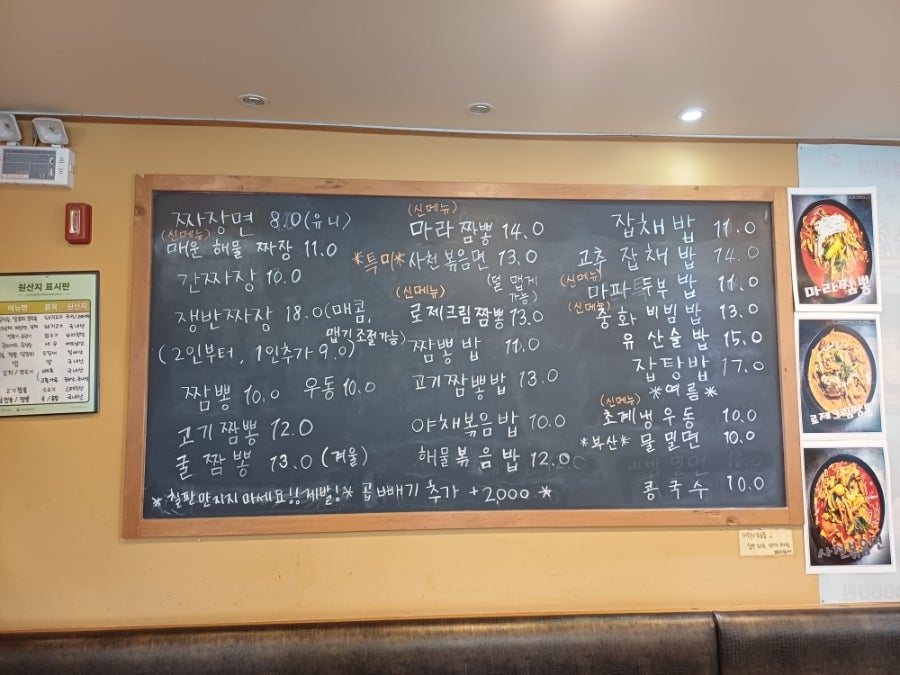 짜장면 8.0 (유니)
(신메뉴)
매운 해물 짜장 11.0
간짜장 10.0
쟁반짜장 18.0 (매콤,
맵기조절가능)
(2인부터, 1인추가 9.0)
짬뽕 10.0 우동 10.0
고기 짬뽕 12.0
굴 짬뽕 13.0 (겨울)
*칠판 만지지 마세요!! 제발!* 곱빼기 추가 +2000 *
(신메뉴)
마라 짬뽕 14.0
*특미* 사천 볶음면 13.0
(덜 맵게
가능)
(신메뉴)
로제크림 짬뽕 13.0
짬뽕 밥 11.0
고기짬뽕밥 13.0
야채볶음밥 10.0
해물 볶음밥 12.0
잡채밥 11.0
고추 잡채 밥 14.0
(신메뉴) 마파두부 밥 11.0
(신메뉴) 중화 비빔 밥 13.0
유산슬 밥 15.0
잡탕밥 17.0
*여름*
(신메뉴)
초계냉우동 10.0
*부산* 물밀면 10.0
콩국수 10.0
원산지 표시판
메뉴명 품목 원산지
마라짬뽕
로제크림짬뽕
사천볶음면